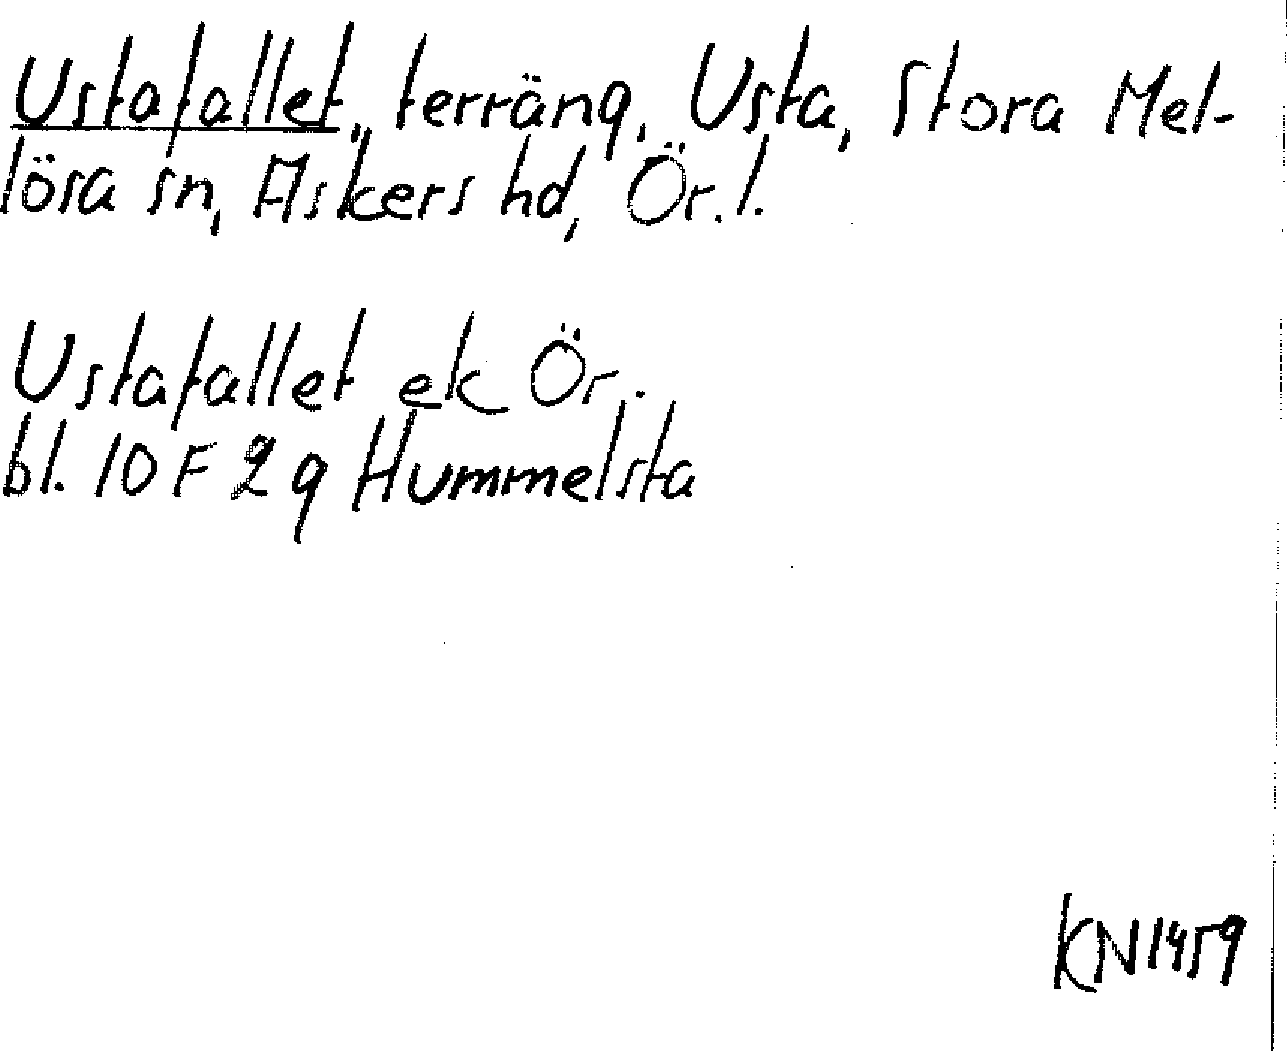 Ustafallet, terräng, Usta, Stora Mel-
lösa sn, Askers hd, Ör. l.
Ustafallet ek Ör.
bl. 10 F 2 g Hummelsta
KN1459